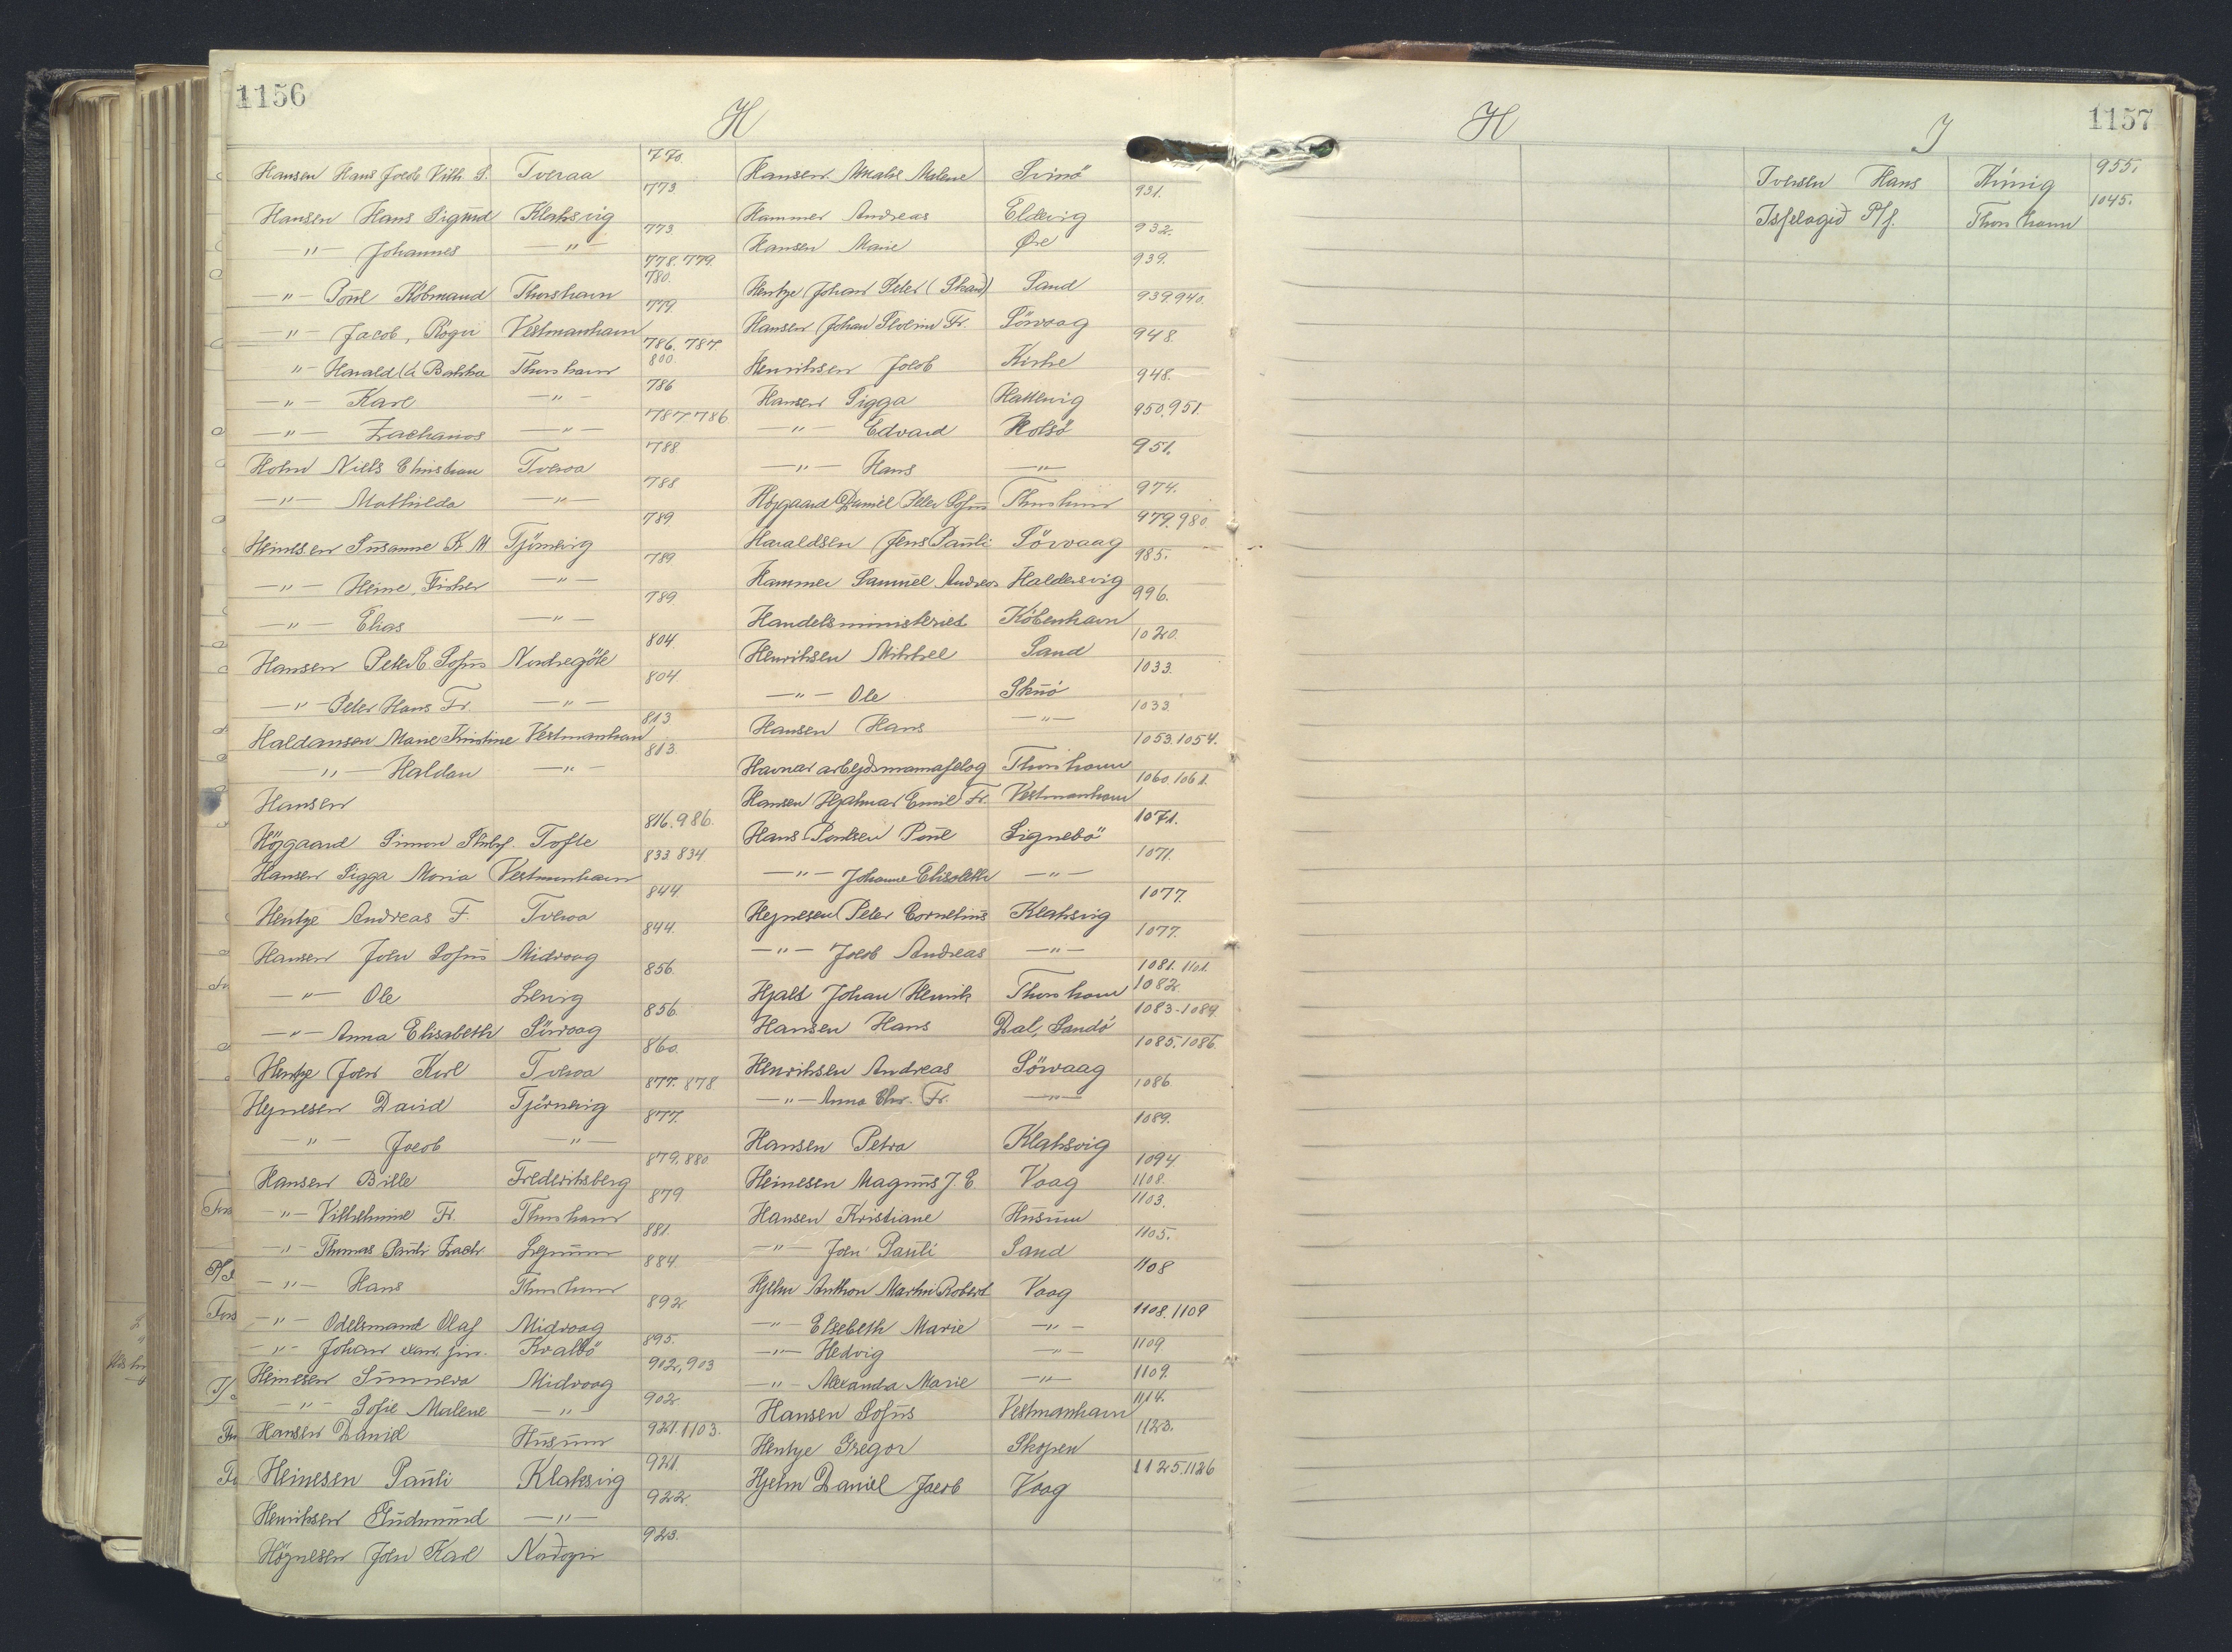 1156
H
Hansen Hans Jacob Vilh. S. Tveraa 770.
Hansen Hans Sigurd Klaksvig 773
-"- Johannes -"- 773
-"- Poul Købmand Thorshavn 778. 779. 780.
-"- Jacob, Rógvi Vestmanhavn 779.
-"- Harald (á Bakka Thorshavn 786. 787. 800.
-"- Karl -"- 786
-"- Zacharias -"- 787 786
Holm Niels Christian Tveraa 788
-"- Mathilda -"- 788
Heinesen Susanne K. M Tjörnevig 789.
-"- Heine, Fisker -"- 789
-"- Elias -"- 789.
Hansen Peter C. Sofus Nordregöte 804.
-"- Peter Hans Fr. -"- 804
Haldansen Marie Kristine Vestmanhavn 813
-"- Haldan -"- 813.
Hansen
Höjgaard Simon Tofte 816. 986.
Hansen Sigga Maria Vestmanhavn 833. 834.
Hentze Andreas F. Tveraa 844.
Hansen John Sofus Midvaag 844.
-"- Ole Lervig 856.
-"- Anna Elisabeth Sörvaag 856.
Hentze John Karl Tveraa 860.
Hejnesen David Tjörnevig 877. 878
-"- Jacob -"- 877.
Hansen Bille Frederiksberg 879. 880.
-"- Vilhelmine Fr. Thorshavn 879
-"- Thomas Pauli Zach. 881.
-"- Hans Thorshavn 884.
-"- Odelsmand Olaf Midvaag 892
-"- Johan exam. jur. Kvalbö 895.
Heinesen Sunneva Midvaag 902, 903
-"- Sofie Malene -"- 902
Hansen Daniel Húsum 921. 1103.
Heinesen Pauli Klaksvig 921.
Henriksen Gudmund -"- 922.
Högnesen John Karl Nordöjri 923.
Hansen Amalie Malene Svinö 931.
Hammer Andreas Eldevig 932.
Hansen Marie Öre 939.
Hentze Johan Peter (Skard) Sand 939 940.
Hansen Johan Fr. Sörvaag 948.
Henriksen Jacob Kirke 948.
Hansen Sigga Hattervig 950. 951.
-"- Edvard Kolsö 951.
-"- Hans -"-
Højgaard Daniel Peter Sofus Thorshavn 974.
Haraldsen Jens Pauli Sörvaag 979. 980.
Hammer Samuel Andreas Haldersvig 985.
Handelsministeriet København 996.
Henriksen Mikkel Sand 1020.
-"- Ole Skuö 1033.
Hansen Hans -"- 1033.
Havnar arbejdsmannafelag Thorshavn 1053. 1054.
Hansen Hjalmar Emil Fr. Vestmanhavn 1060. 1061.
Hans Poulsen Poul Signebö 1071.
-"- Johanne Elisabeth -"- 1071.
Hejnesen Peter Cornelius Klaksvig 1077.
-"- Jacob Andreas -"- 1077.
Hjalt Johan Henrik Thorshavn 1081. 1101. 1082
Hansen Hans Dal, Sandö 1083-1089.
Henriksen Andreas Sörvaag 1085. 1086.
-"- Anna Chr. Fr. -"- 1086
Hansen Petra Klaksvig 1089.
Heinesen Magnus J. E. Vaag 1094. 1108.
Hansen Kristiane Húsum 1103.
-"- John Pauli Sand 1105.
Hjelm Anthon Martin Robert Vaag 1108
-"- Elsebeth Marie -"- 1108. 1109
-"- Hedvig -"- 1109
-"- Alexandra Marie -"- 1109.
Hansen Sofus Vestmanhavn 1114.
Hentze Gregor Skopen 1123.
Hjelm Daniel Jacob Vaag 1125. 1126
1157
H
I
Iversen Hans Kúnig 955.
Isfelagið P/f. Thorshavn 1045.